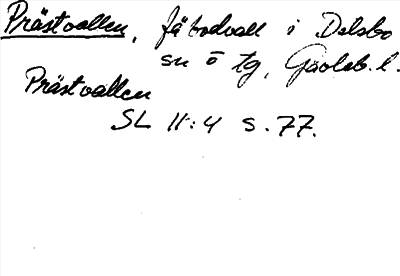 Prästvallen, fäbodvall i Delsbo
sn o tg, Gävleb. l.
Prästvallen
SL 11:4 s. 77.